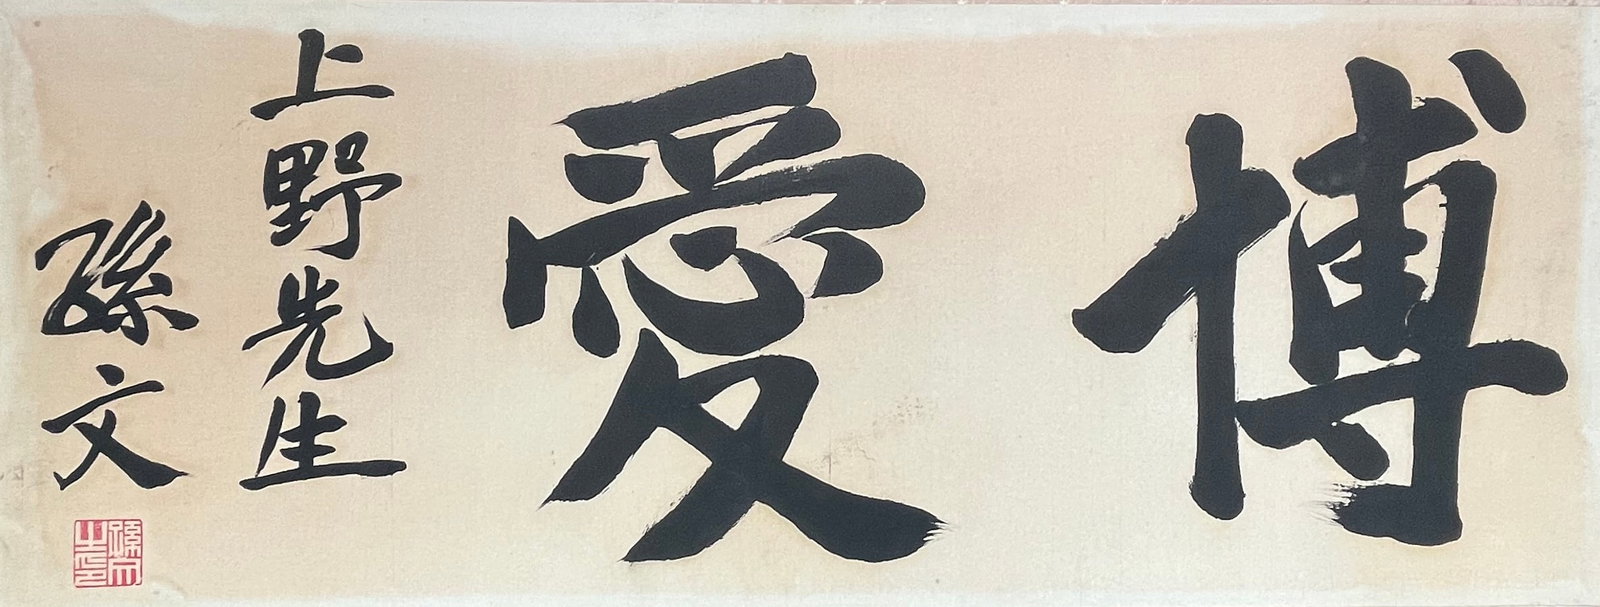 博愛
上野先生
孫文
孫文之印